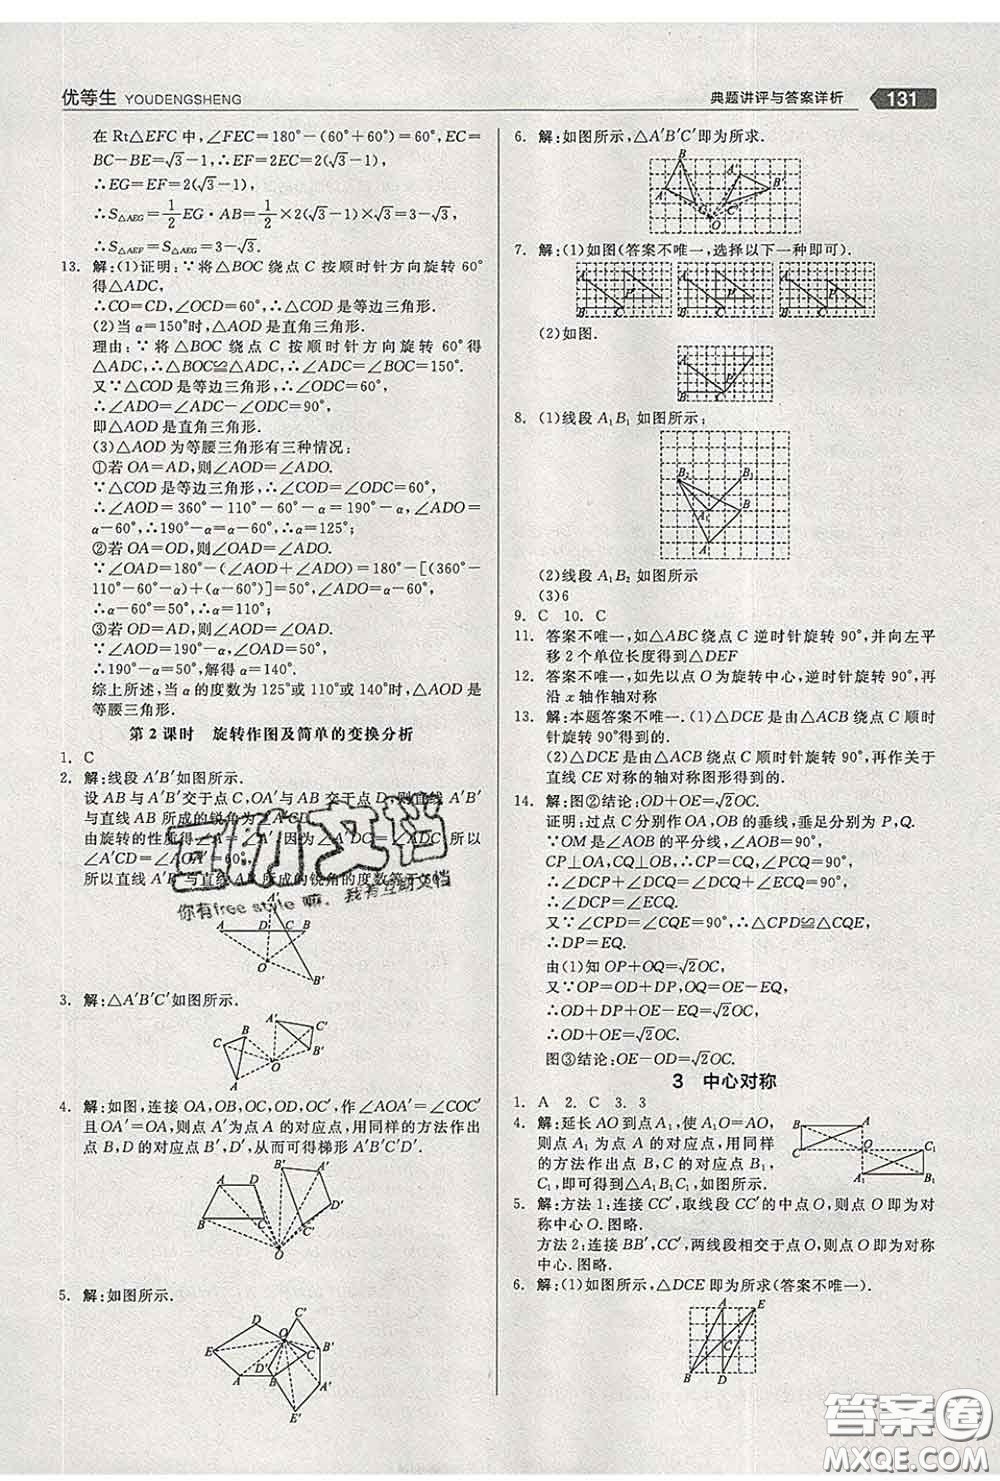 优等生 YOUDENGSHENG
典题讲评与答案详析 131
在 Rt△EFC 中,∠FEC=180°-(60°+60°)=60°,EC=
BC-BE=√3-1,∴EF=2EC=2(√3-1),
∴EG=EF=2(√3-1),
∴S△AEG=1/2 EG·AB=1/2×2(√3-1)×√3=3-√3,
∴S△AEF=S△AEG=3-√3.
13. 解:(1)证明:∵将△BOC 绕点 C 按顺时针方向旋转 60°
得△ADC,
∴CO=CD,∠OCD=60°,∴△COD 是等边三角形.
(2)当 α=150°时,△AOD 是直角三角形.
理由:∵将△BOC 绕点 C 按顺时针方向旋转 60°得
△ADC,∴△BOC≌△ADC,∴∠ADC=∠BOC=150°.
又∵△COD 是等边三角形,∴∠ODC=60°,
∴∠ADO=∠ADC-∠ODC=90°,
即△AOD 是直角三角形.
(3)△AOD 为等腰三角形有三种情况:
①若 OA=AD,则∠AOD=∠ADO.
∵△COD 是等边三角形,∴∠COD=∠ODC=60°,
∴∠AOD=360°-110°-60°-α=190°-α,∠ADO=
α-60°,∴190°-α=α-60°,∴α=125°;
②若 OA=OD,则∠OAD=∠ADO.
∵∠OAD=180°-(∠AOD+∠ADO)=180°-[(360°-
110°-60°-α)+(α-60°)]=50°,∴∠ADO=α-60°,
∴α-60°=50°,∴α=110°;
③若 OD=AD,则∠AOD=∠OAD.
∵∠AOD=190°-α,∠OAD=50°,
∴190°-α=50°,解得 α=140°.
综上所述,当 α 的度数为 125°或 110°或 140°时,△AOD 是
等腰三角形.
第 2 课时 旋转作图及简单的变换分析
1. C
2. 解:线段 A′B′如图所示.
设 AB 与 A′B′交于点 C,OA′与 AB 交于点 D,则直线 A′B′
与直线 AB 所成的锐角为∠A′CD.
由旋转的性质得∠A=∠A′,因为∠A′DC=∠ADO,所以
∠A′CD=∠AOA′=60°.
所以直线 A′B′与直线 AB 所成的锐角的度数等于
A D C B A′ O B′
3. 解:△A′B′C′如图所示.
A′ C′ B C B′ O A
4. 解:如图,连接 OA,OB,OC,OD,作∠AOA′=∠COC′
且 OA′=OA,则点 A′为点 A 的对应点,用同样的方法作出
点 B,D 的对应点 B′,D′,从而可得梯形 A′B′C′D′.
B′ A′ A D D′ B C O
5. 解:如图所示.
C′ D O B′ E C D′ A B A′ E′
6. 解:如图所示,△A′B′C′即为所求.
B A′ A B′ C O
7. 解:(1)如图(答案不唯一,选择以下一种即可).
A P B C A P B C A P B C
(2)如图.
A P B C
8. (1)线段 A₁B₁ 如图所示;
B₂ B₁ A₁ B A
(2)线段 A₁B₂ 如图所示
(3)6
9. C 10. C
11. 答案不唯一,如△ABC 绕点 C 逆时针旋转 90°,并向左平
移 2 个单位长度得到△DEF
12. 答案不唯一,如先以点 O 为旋转中心,逆时针旋转 90°,再
沿 x 轴作轴对称
13. 解:本题答案不唯一.(1)△DCE 是由△ACB 绕点 C 顺时
针旋转 90°得到的.
(2)△DCE 是由△ACB 绕点 C 顺时针旋转 90°,再作关于
直线 CE 对称的轴对称图形得到的.
14. 解:图②结论:OD+OE=√2OC.
证明:过点 C 分别作 OA,OB 的垂线,垂足分别为 P,Q.
∵OM 是∠AOB 的平分线,∠AOB=90°,
CP⊥OA,CQ⊥OB,∴CP=CQ,∠PCQ=90°,
∴∠DCP+∠DCQ=∠DCQ+∠ECQ=90°,
∴∠DCP=∠ECQ.
又∵∠CPD=∠CQE=90°,∴△CPD≌△CQE,
∴DP=EQ.
由(1)知 OP+OQ=√2OC,
又∵OP=OD+DP,OQ=OE-EQ,
∴OD+DP+OE-EQ=√2OC,
∴OD+OE=√2OC.
图③结论:OE-OD=√2OC.
3 中心对称
1. A 2. C 3. 3
4. 解:延长 AO 到点 A₁,使 A₁O=AO,
则点 A₁为点 A 的对应点,用同样
的方法作出点 B,C 的对应点 B₁,
C₁,即可得到△A₁B₁C₁,如图所示.
B A C O C₁ A₁ B₁
5. 解:方法 1:连接 CC′,取线段 CC′的中点 O,则点 O 即为对
称中心 O.图略.
方法 2:连接 BB′,CC′,两线段相交于点 O,则点 O 即为对称中
心.图略.
6. 解:(1)如图所示,△DCE 即为所求(答案不唯一).
A E C B D
互助文档
你有free style 嘛，我有互助文档
答案圈
MXQE.COM